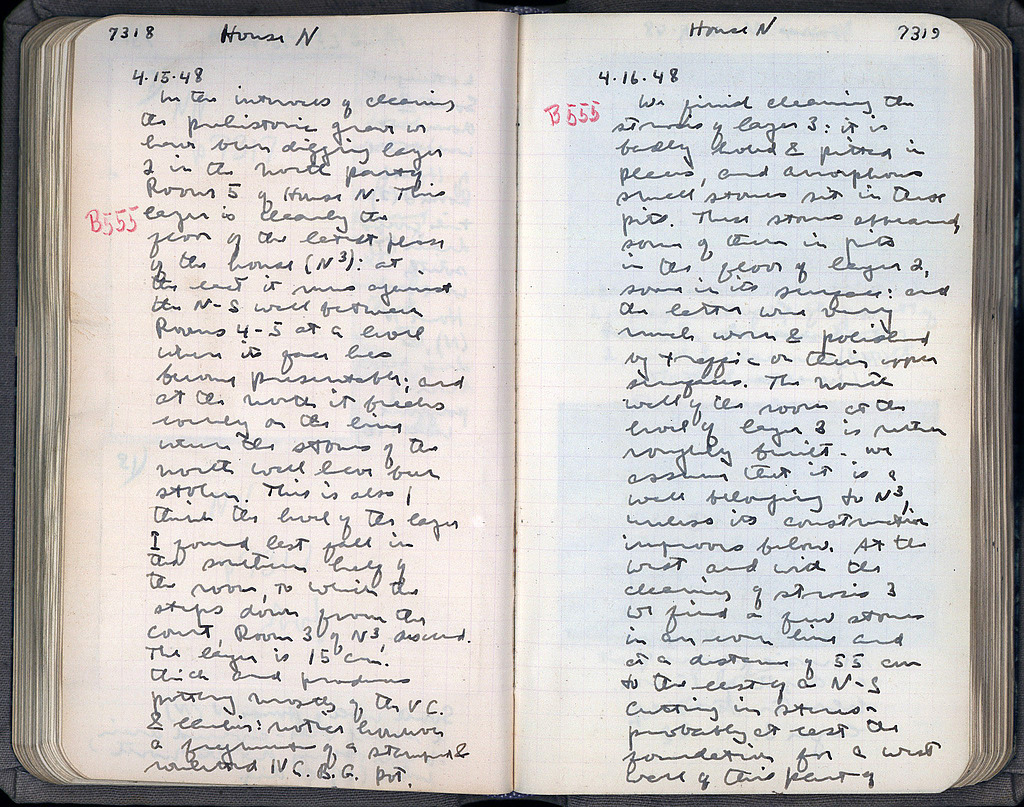 7318 House N
4·15·48
In the intervals of cleaning
the prehistoric grave we
have been digging layer
2 in the north part of
Room 5 of House N. This
B555
layer is clearly the
floor of the latest phase
of the house (N³): at
the east it runs against
the N-S wall between
Rooms 4-5 at a level
where its face has
become presentable; and
at the north it breaks
evenly on the line
where the stones of the
north wall have been
stolen. This is also I
think the level of the layer
I found last fall in
the southern half of
the room, to which the
steps down from the
court, Room 3 of N³, descend.
The layer is 15 cm.
thick and produces
pottery mostly of the V C.
& earlier: notice however
a fragment of a stamped &
rouletted IV C. B.G. pot.
House N 7319
4·16·48
B555
We finish cleaning the
strosis of layer 3: it is
badly holed & pitted in
places, and amorphous
small stones sit in these
pits. These stones appeared,
some of them in pits
in the floor of layer 2,
some in its surface: and
the latter were very
much worn & polished
by traffic on their upper
surfaces. The north
wall of the room at the
level of layer 3 is rather
roughly built - we
assume that it is a
wall belonging to N³,
unless its construction
improves below. At the
west and with the
cleaning of strosis 3
we find a few stones
in an even line and
at a distance of 55 cm
to the east of a N-S
cutting in stereo-
probably at last the
foundation for a west
wall of this part of